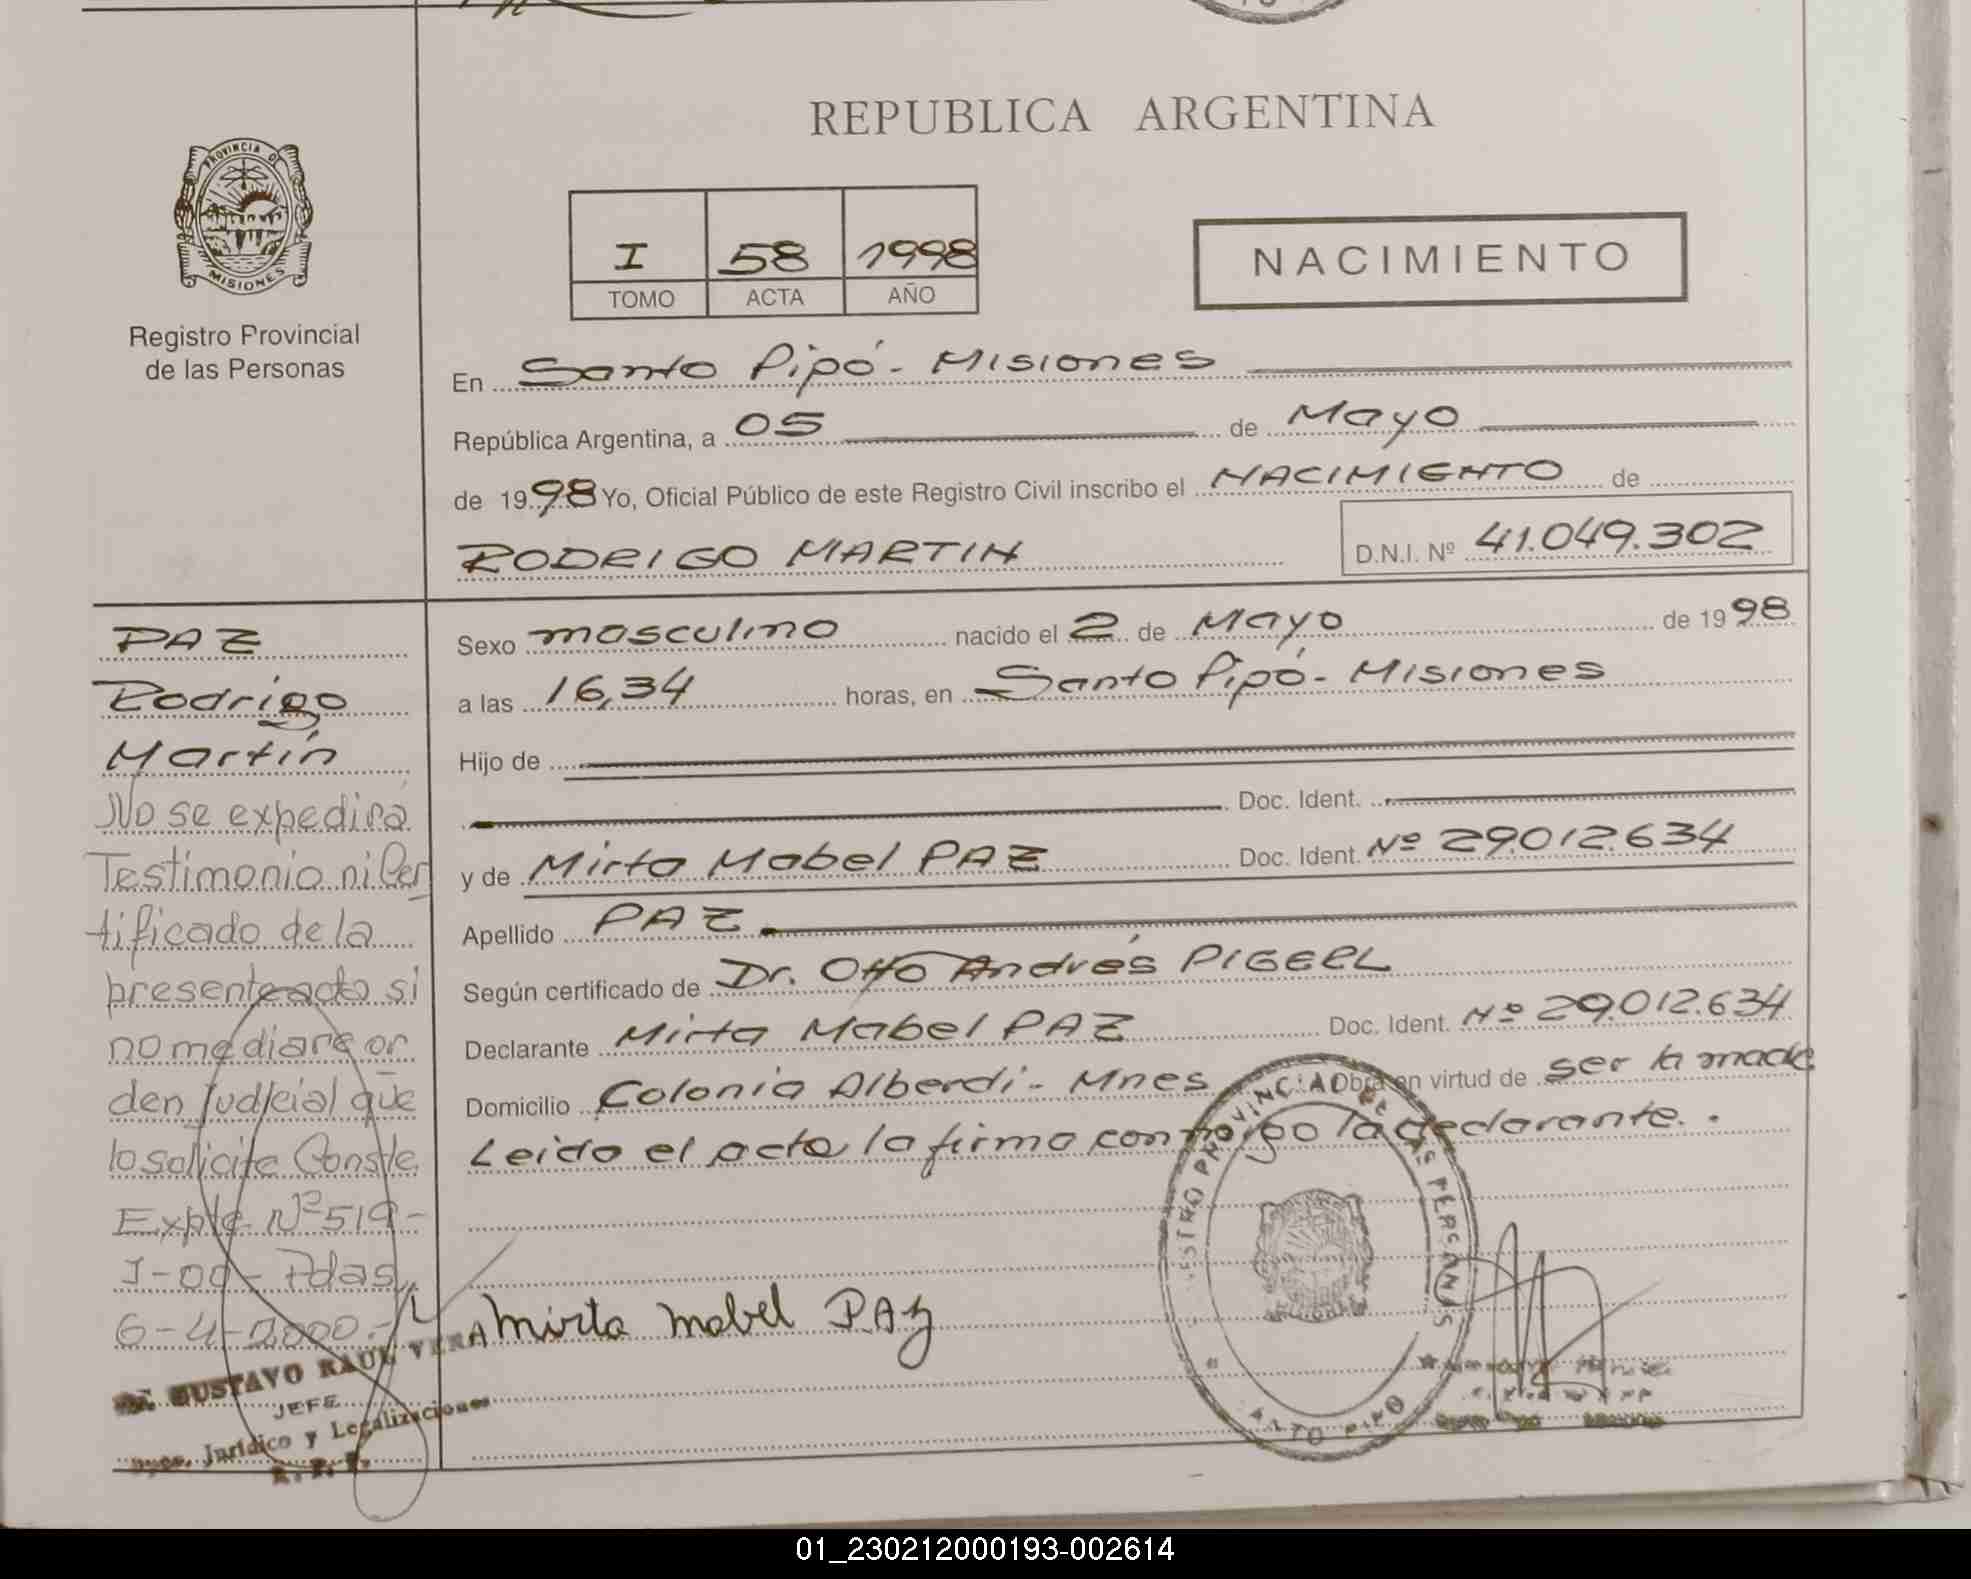 REPUBLICA ARGENTINA
PROVINCIA DE
MISIONES
Registro Provincial
de las Personas
I 58 1998
TOMO ACTA AÑO
NACIMIENTO
En Santo Pipó - Misiones
República Argentina, a 05 de Mayo
de 1998 Yo, Oficial Público de este Registro Civil inscribo el NACIMIENTO de
RODRIGO MARTIN D.N.I. Nº 41.049.302
PAZ
Rodrigo
Martín
No se expedirá
Testimonio ni Cer
tificado de la
presente acta si
no mediare or
den judicial que
lo solicite Conste.
Expte Nº 519-
I-00- Pdas,
6-4-2000.-
GUSTAVO RAUL VERA
JEFE
Dpto. Jurídico y Legalizaciones
R. P. P.
Sexo masculino nacido el 2 de Mayo de 1998
a las 16,34 horas, en Santo Pipó - Misiones
Hijo de
Doc. Ident.
y de Mirta Mabel PAZ Doc. Ident. Nº 29.012.634
Apellido PAZ
Según certificado de Dr. Otto Andrés PIGERL
Declarante Mirta Mabel PAZ Doc. Ident. Nº 29.012.634
Domicilio Colonia Alberdi - Mnes Obra en virtud de ser la madre
Leido el acta, la firma conmigo la declarante.
Mirta Mabel PAZ
REGISTRO PROVINCIAL DE LAS PERSONAS
01_230212000193-002614